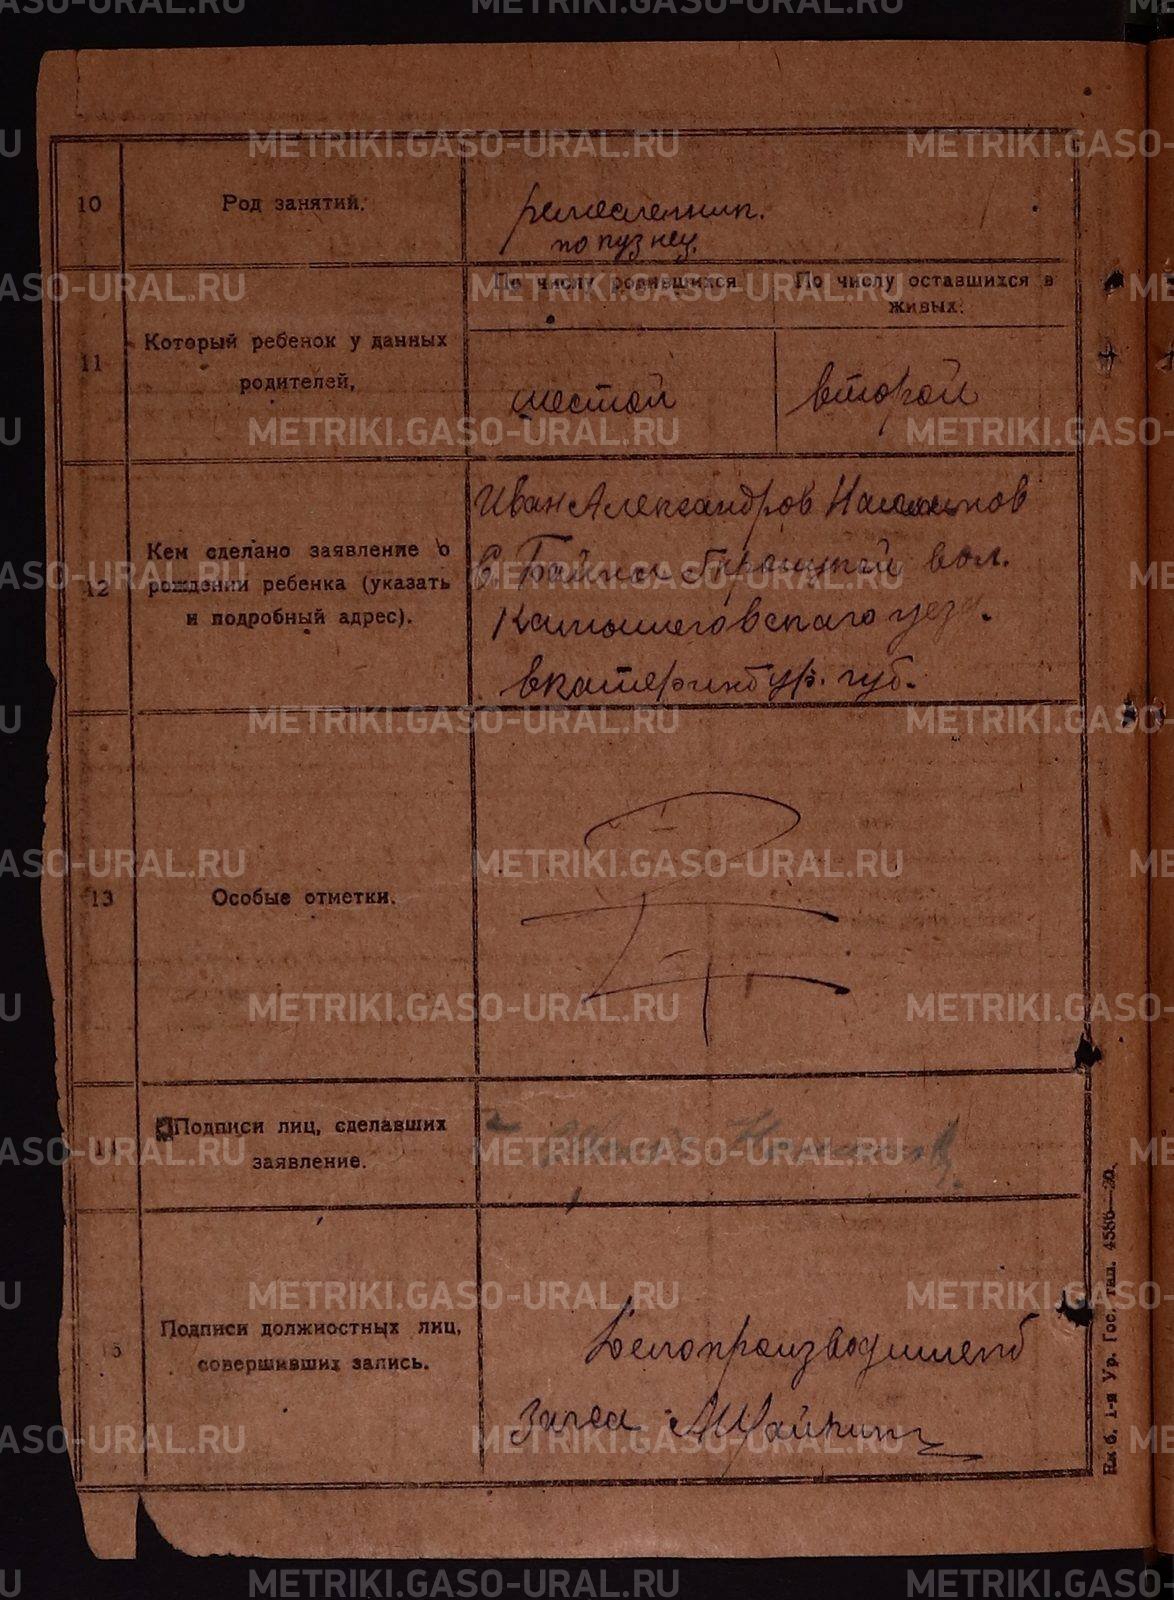 10
Род занятий.
ремесленник.
по кузнец.
11
Который ребенок у данных
родителей,
По числу родившихся
По числу оставшихся в
живых:
шестой
второй
12
Кем сделано заявление о
рождении ребенка (указать
и подробный адрес).
Иван Александров
вол.
Камышловскаго уезд.
екатеринбур. губ.
13
Особые отметки.
14
Подписи лиц, сделавших
заявление.
15
Подписи должностных лиц,
совершивших запись.
Делопроизводитель
Загса
Ек-б. 1-я Ур. Гос. тип. 4586—20.
METRIKI.GASO-URAL.RU